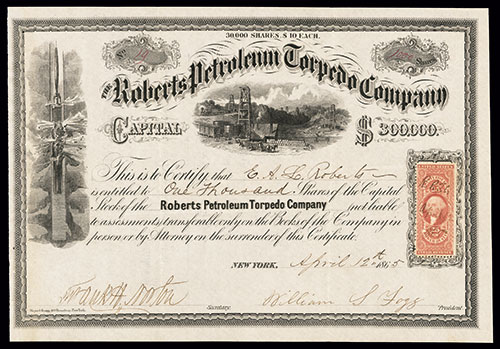 30,000 SHARES, $10 EACH.
No
Shares
THE Roberts Petroleum Torpedo Company
CAPITAL $300,000.
This is to Certify that E. A. L. Roberts
is entitled to One Thousand Shares of the Capital
Stock of the Roberts Petroleum Torpedo Company not liable
to assessments, transferable only on the Books of the Company in
person or by Attorney on the surrender of this Certificate.
NEW YORK, April 12th 1865
Frank H. Norton William S. Fogg
Secretary. President